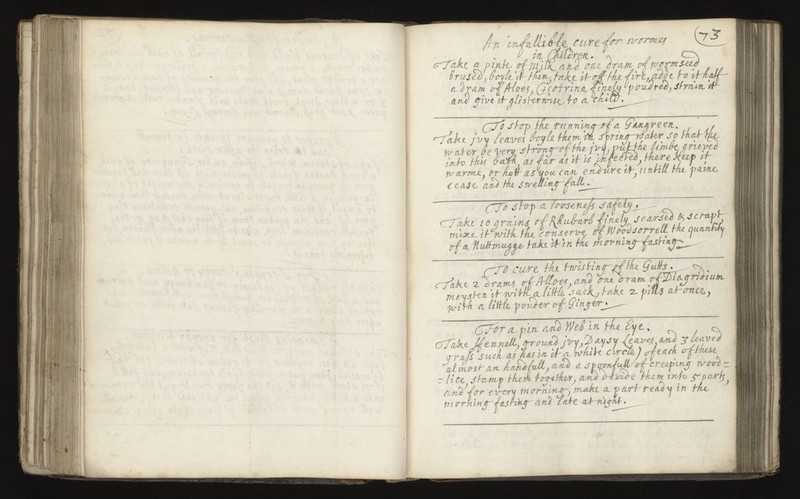 73
An infallible cure for wormes
in Children.
Take a pinte of Milk and one dram of wormseed
brused, boyle it then take it off the fire, adde to it half
a dram of Aloes, Cicotrina finely poudred, strain it
and give it glisterwise to a child.
To stop the running of a Gangreen.
Take jvy leaves boyle them in spring water so that the
water be very strong of the jvy, put the limbe grieved
into this bath, as far as it is infected, there keep it
warme, or hott as you can endure it, untill the paine
cease and the swelling fall.
To stop a looseness safely.
Take 10 grains of Rhubarb finely searsed & scrapt
mixe it with the conserve of Woodsorrell the quantity
of a Nuttmugge take it in the morning fasting
To cure the twisting of the Gutts.
Take 2 drams of Alloes, and one dram of Diagridium
moysten it with a little sack, take 2 pills at once,
with a little pouder of Ginger.
For a pin and Web in the Eye.
Take ffennell, ground jvy, Daysy leaves, and 3 leaved
grass such as has in it a white circle) of each of these
almost an handfull, and a spoonfull of creeping wood=
=lice, stamp them together, and devide them into 5 parts,
and for every morning, make a part ready in the
morning fasting and late at night.